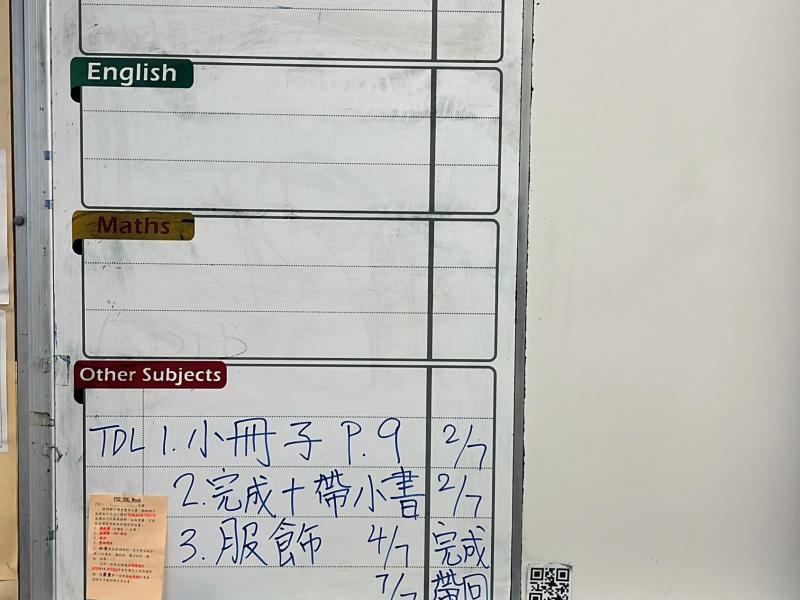 English
Maths
Other Subjects
TDL 1. 小冊子 P.9 2/7
2. 完成+帶小書 2/7
3. 服飾 4/7 完成
7/7 帶回